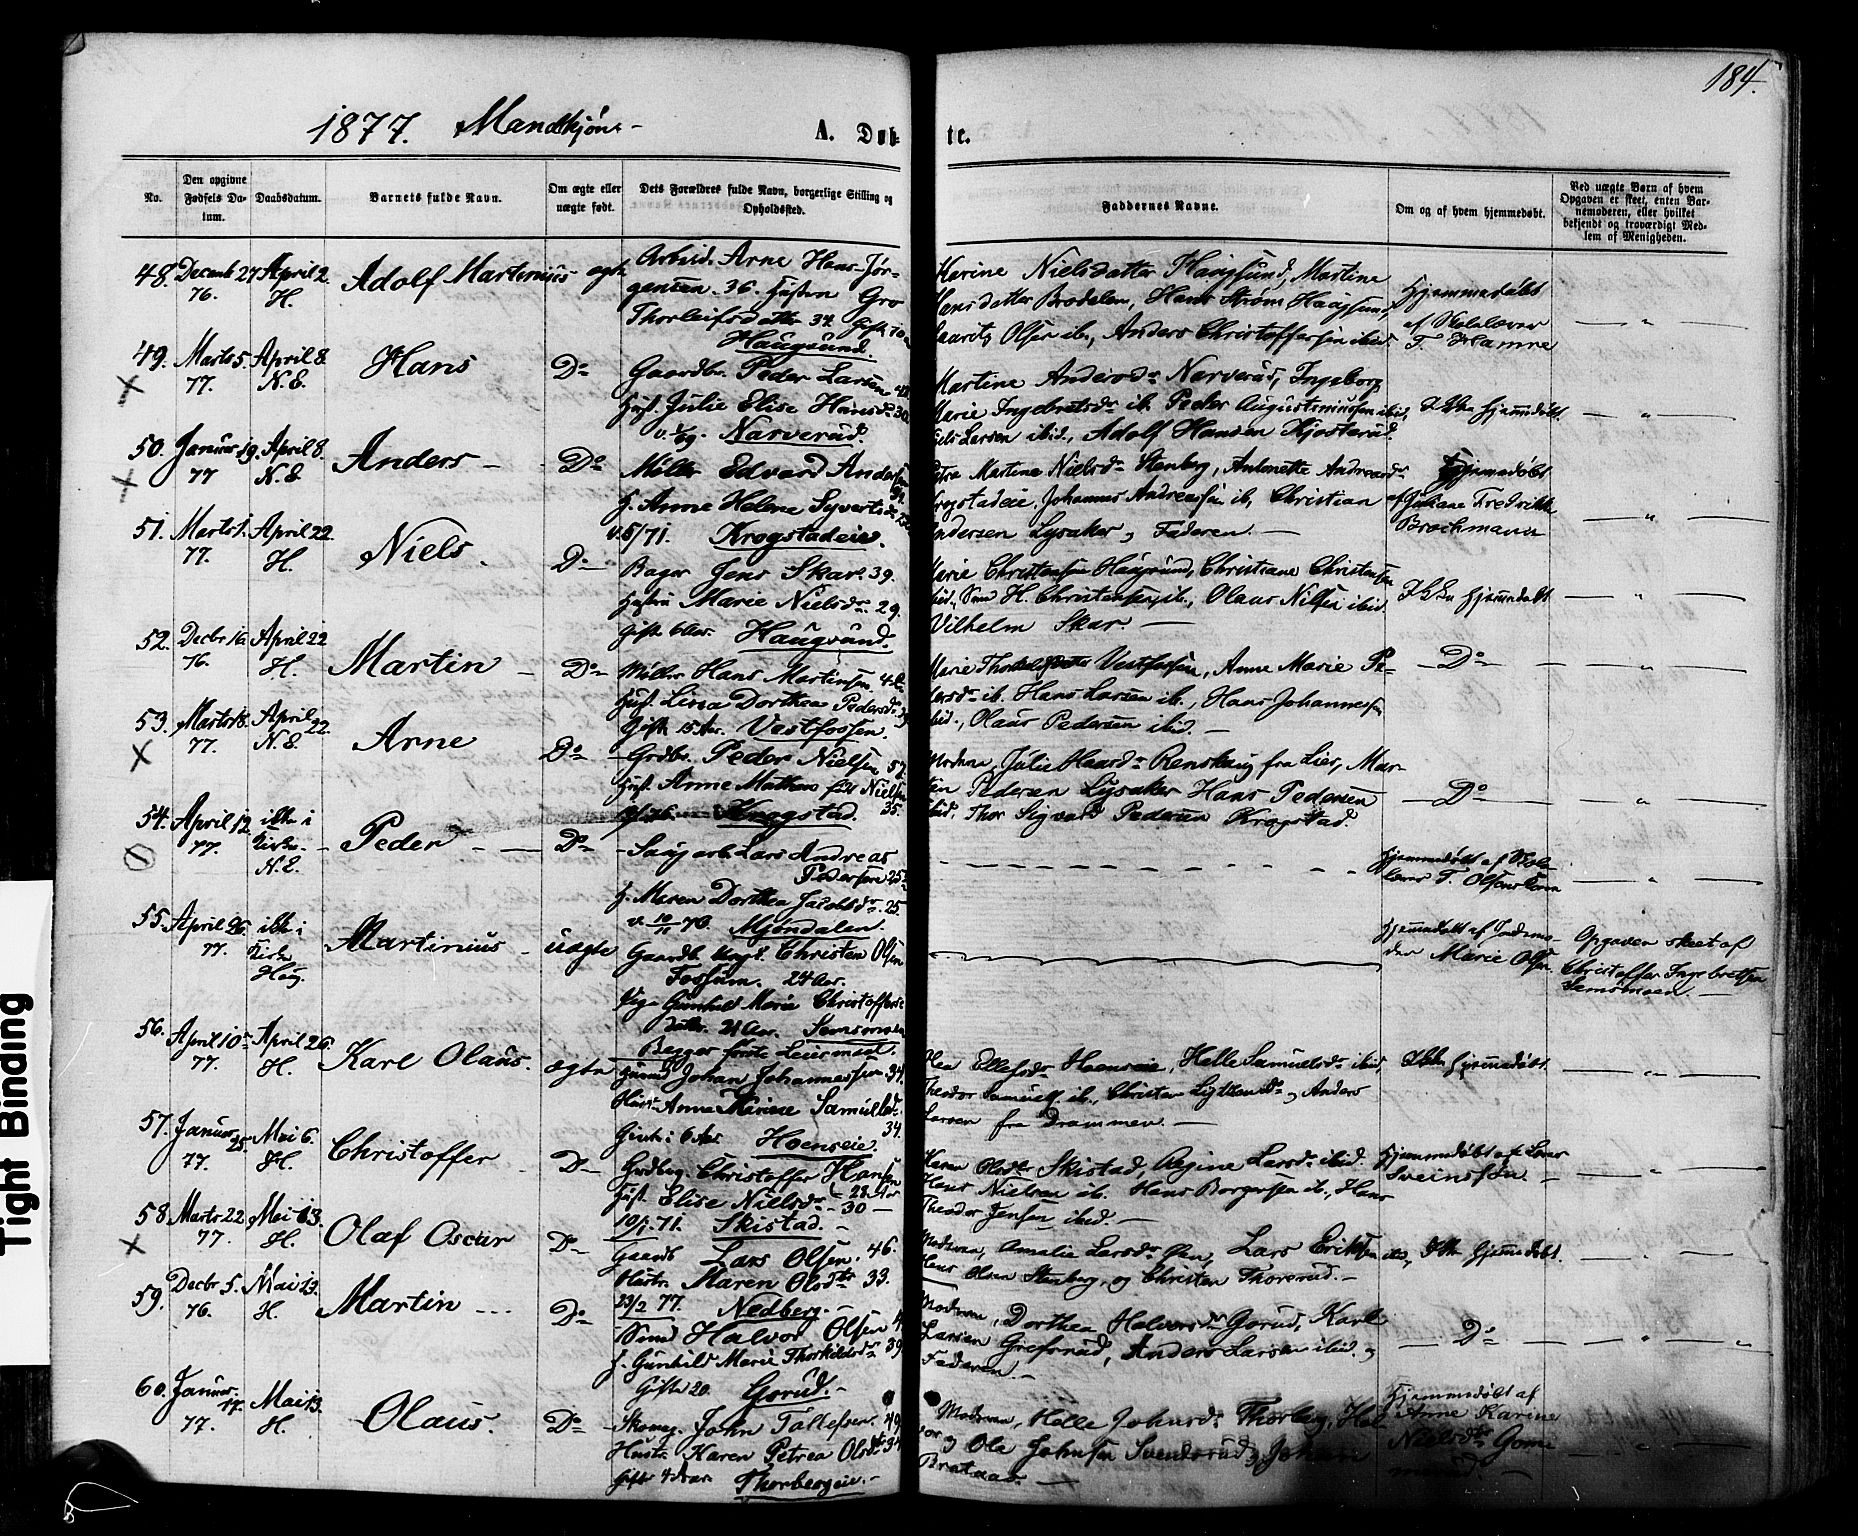 184.
1877. Mandkjøn- A. Døb- te.
No.
Den opgivne Fødsels Datum.
Daabsdatum.
Barnets fulde Navn.
Om ægte eller uægte født.
Dets Forældres fulde Navn, borgerlige Stilling og Opholdssted.
Faddernes Navne.
Om og af hvem hjemmedøbt.
Ved uægte Børn af hvem Opgaven er skeet, enten Barnemoderen, eller hvilket bekjendt og troværdigt Medlem af Menigheden.
48. Decemb 27 76. April 2. H. Adolf Martinius ægte
Arbeid. Arne Hans Jør-
gensen 36. Hustru Gro
Thorleifsdatter 34. Gift
Haugsund.
Karine Nielsdatter Haugsund, Martine
Hansdatter Brødalen, Hans Strøm Haugsund,
Lauritz Olsen ib., Anders Christoffersen ibid.
Hjemmedøbt
af Skolelærer
T. Hamre
49. Marts 5. 77. April 8. N.E. Hans Do
Gaardbr. Peder Larsen
Hust. Julie Elise Hansdr. 30
Narverud
Martine Andersdr Narverud, Ingeborg
Marie Ingebretsdr ib. Peder Augustinussen ibid,
Niels Larsen ibid., Adolf Hansen Kjosterud.
Ikke hjemmedøbt.
50. Januar 19. 77 April 8. N.E. Anders Do
Møller Edvard Andersen
H. Anne Helene Syvertsdr
v. 5/71. Krogstadeie.
Petra Martine Nielsdr Stenberg, Antonette Andreasdr
Krogstadeie, Johannes Andreassen ib, Christian
Andersen Lysaker og Faderen.
Hjemmedøbt
af Juliane Fredrikke
Brochmann
51. Marts 1. 77. April 22. H. Niels. Do
Bager Jens Skar. 39.
Hustru Marie Nielsdr. 29.
Gift 6 Aar. Haugsund.
Marie Christensen Haugsund, Christiane Christensen
ibid., H. Christensen, ib., Olaus Nilsen ibid.
Vilhelm Skar.
Ikke hjemmedøbt
52. Decbr 16. 76. April 22 H. Martin Do
Møller Hans Martinsen
Hust. Lina Dorthea Pedersdr
Gift 15 Aar. Vestfossen.
Vestfossen, Anne Marie Pe-
dersdr ib. Hans Larsen ib., Hans Johannessen
ibid., Olaus Pedersen ibid.
Do
53. Marts 18. 77. April 22. N.E. Arne Do
Grdbr. Peder Nielsen 57.
Hust. Anne Mathea Nielsen
35.
Krogstad.
Moderen, Julie Renskaug fra Lier, Mar-
tin Pedersen Lysaker Hans Pedersen
ibid, Thor Sigvard Pedersen Krogstad.
Do
54. April 12. 77. ikke i Kirke. N.E. Peder Do
Saugarb. Lars Andreas
Pedersen 25
H. Maren Dorthea Jacobsdr. 25.
v. 10/11 70. Mjøndalen.
Hjemmedøbt af Skole-
lærer T. Olsen
55. April 26. 77. ikke i Kirke Haug. Martinius uægte
Gaardb. Ungk. Christen Olsen
Fossum. 24 Aar.
Pige Gunhild Marie Christoffers-
datter. 21 Aar. Semsmoen
Begges første Leiermaal.
Hjemmedøbt af Jordemo-
der Marie Olsen.
Opgaven skeet af
Christoffer Ingebretsen
Semsmoen.
56. April 10 77. April 26. H. Karl Olaus. ægte
Huusm. Johan Johannessen 34.
Hustr. Anne Samuelsd.
34.
Gift i 6 Aar. Hoenseie.
Olea Ellefsdr Hoenseie, Helle Samuelsdr ibid,
Theodor Samuels. ib., Christen og Anders
Larsen fra Drammen.
Ikke hjemmedøbt.
57. Januar 25. 77. Mai 6. H. Christoffer Do
Grdbrg. Christoffer Hansen
Hust. Elise Nielsdr. 28 Aar
30
10/7. 71. Skistad.
Karen Olsdtr Skistad, Regine Larsdr ibid.
Hans Nielsen ib. Hans Borgersen ib., Hans
Theodor Jensen ibid.
Hjemmedøbt af Lars
58. Marts 22. 77. Mai 13. H. Olaf Oscar Do
Gaardb Lars Olsen. 46.
Hustr. Maren Olsdtr 33.
23/2 77. Nedberg.
Moderen, Amalie Larsdr Øen, Lars Eriksen ibid,
Hans Olsen Stenberg, og Christen Thorsrud.
Ikke hjemmedøbt.
59. Decbr 5. 76. Mai 13. H. Martin Do
Smed Halvor Olsen
H. Gunhild Marie Thorkildsdr 39
Gifte 20. Gorud.
Moderen, Dorthea Halvorsdr Gorud, Karl
Larsen Grefsrud, Anders Larsen ibid. og
Faderen.
Do
60. Januar 17. 77. Mai 13. H. Olaus. Do
Skomg. John Tollefsen. 49
Hustr. Karen Petrea Olsdtr 34
Gift 4 Aar. Thorbergeie.
Moderen, Helle Johnsdr Thorberg,
og Ole Johnsen Svendsrud, Johan
Brataas.
Hjemmedøbt af
Anne Karine
Nielsdtr
Tight Binding